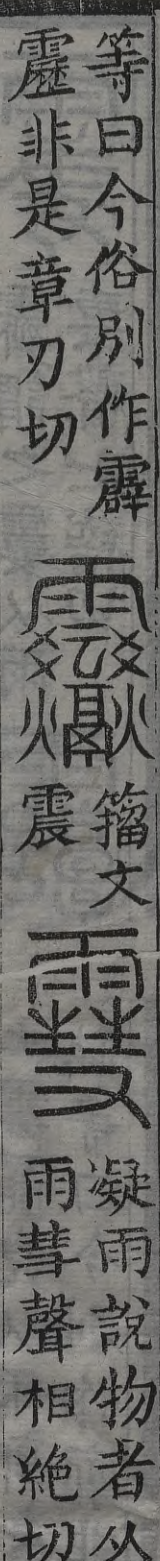 等曰今俗別作霹
靂非是章刃切
籀文
震
䨮
凝雨說物者从
雨彗聲相絶切